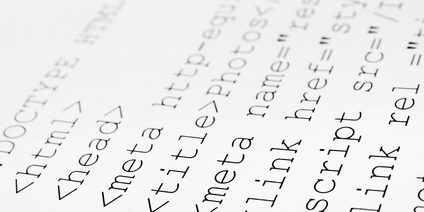 DOCTYPE HTML
<html>
<head>
<meta http-equi
<title>Photos</
<meta name="res
link href="sty
script src="/I
link rel ="